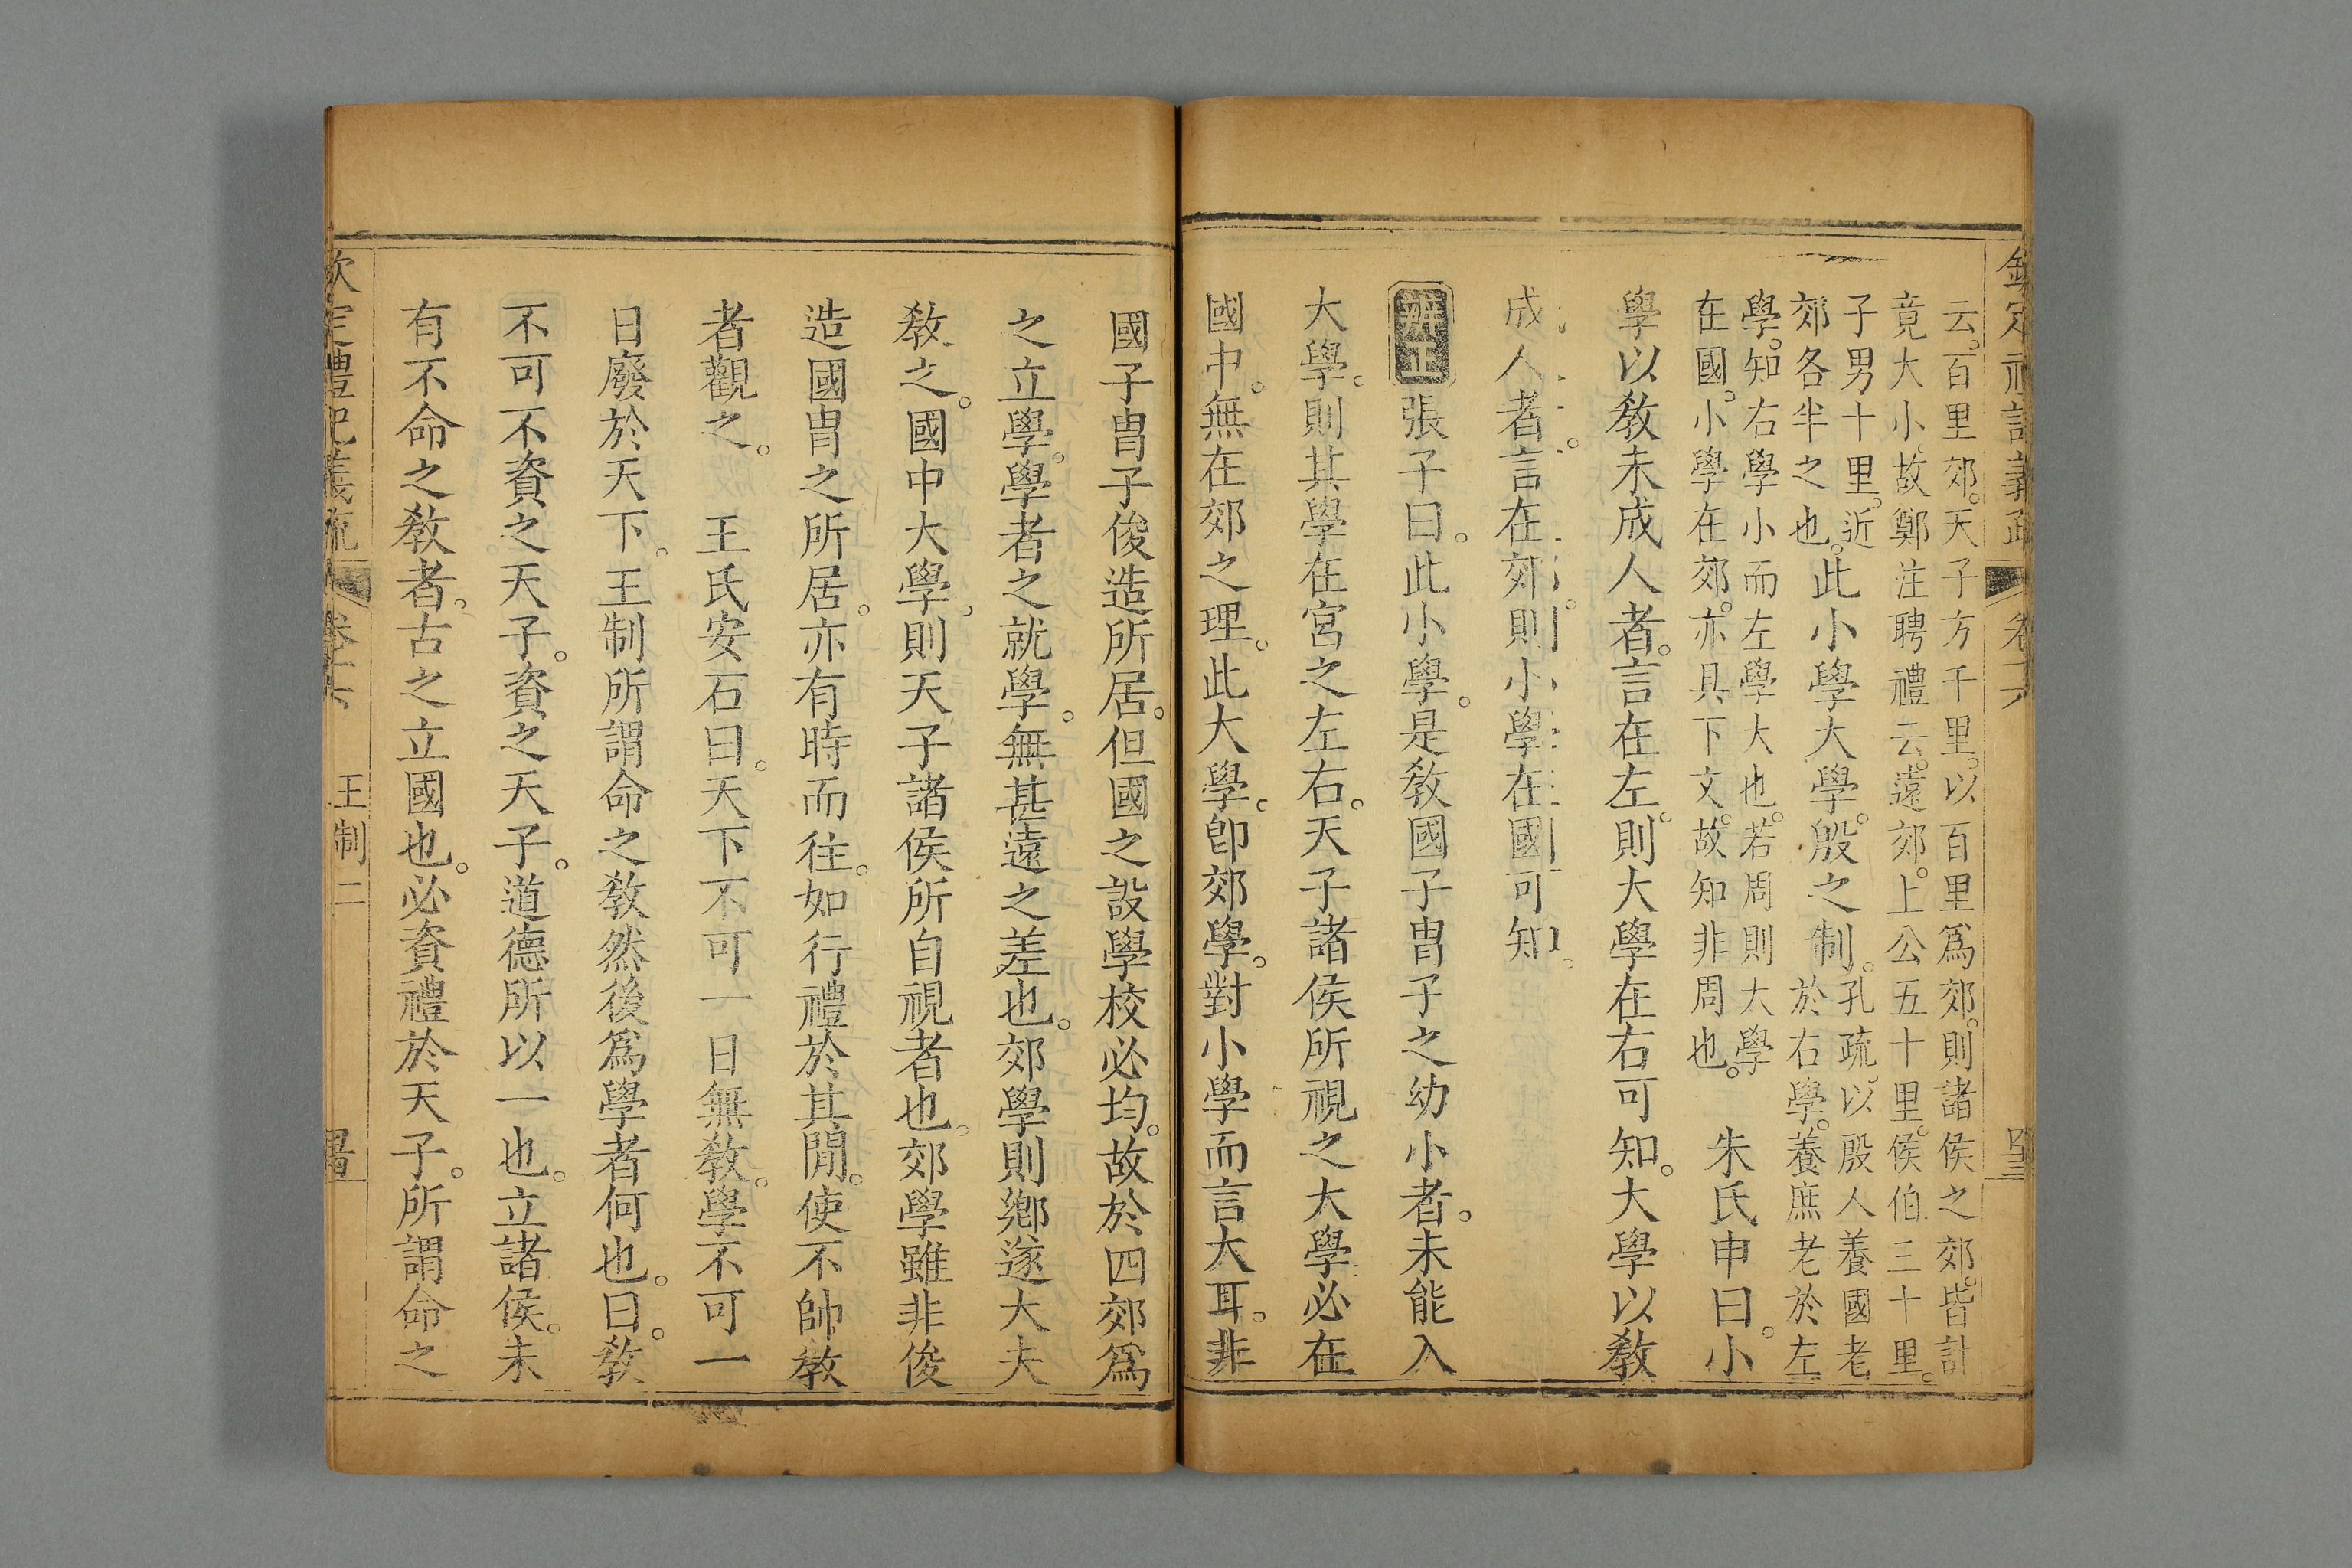 欽定禮記義疏 卷十六
云。百里郊。天子方千里。以百里爲郊。則諸侯之郊。皆計
竟大小。故鄭注聘禮云。遠郊。上公五十里。侯伯三十里。
子男十里。近
郊各半之也。
此小學大學。殷之制。
孔疏。以殷人養國老
於右學。養庶老於左
學。知右學小而左學大也。若周則大學
在國。小學在郊。亦具下文。故知非周也。
朱氏申曰。小
學以敎未成人者。言在左。則大學在右可知。大學以敎
成人者。言在郊。則小學在國可知。
辨正 張子曰。此小學。是敎國子胄子之幼小者。未能入
大學。則其學在宮之左右。天子諸侯所視之大學必在
國中。無在郊之理。此大學。卽郊學。對小學而言大耳。非
國子胄子俊造所居。但國之設學校必均。故於四郊爲
之立學。學者之就學。無甚遠之差也。郊學則鄕遂大夫
敎之。國中大學。則天子諸侯所自視者也。郊學雖非俊
造國胄之所居。亦有時而往。如行禮於其閒。使不帥敎
者觀之。 王氏安石曰。天下不可一日無敎。學不可一
日廢於天下。王制所謂命之敎然後爲學者何也。曰。敎
不可不資之天子。資之天子。道德所以一也。立諸侯。未
有不命之敎者。古之立國也。必資禮於天子。所謂命之
欽定禮記義疏 卷十六 王制二